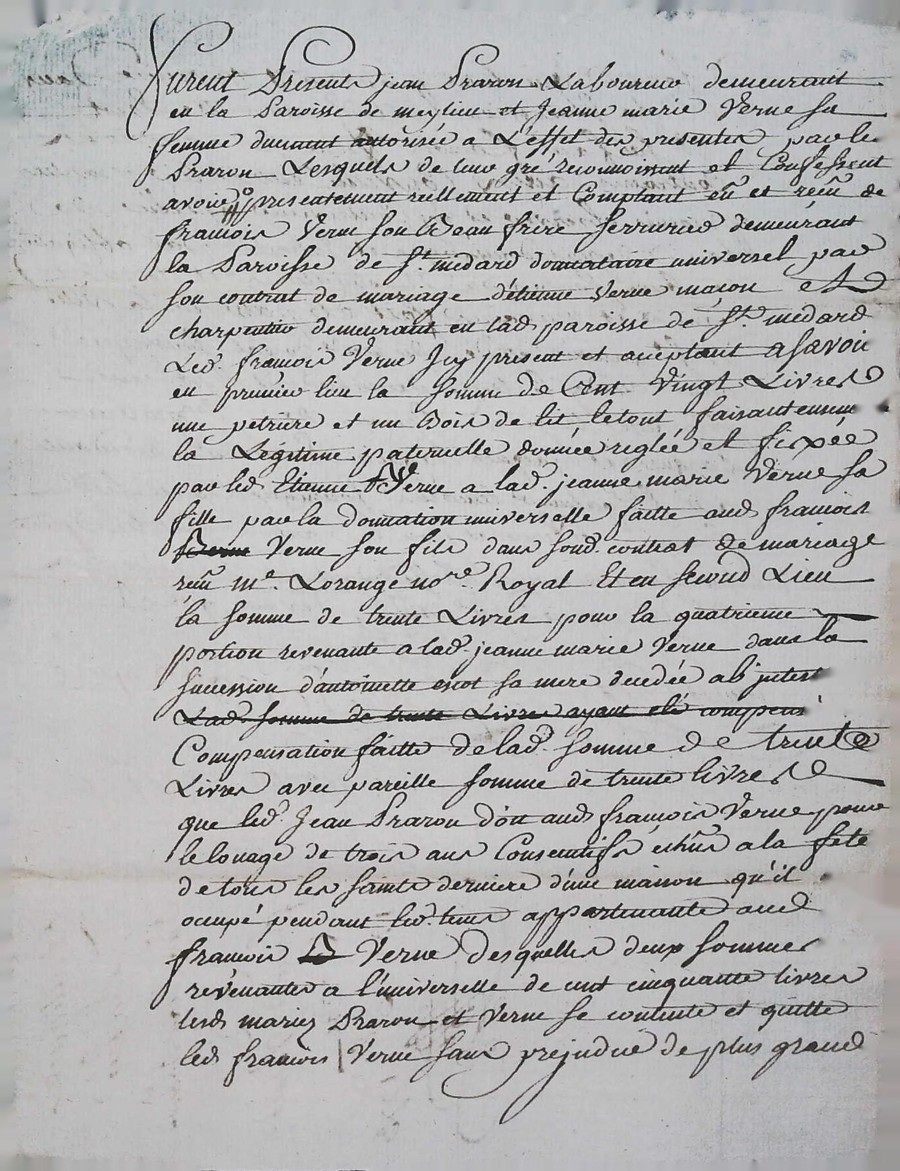 furent Presents jean Praron Laboureur demeurant
en la Paroisse de meylieu et Jeanne marie Verne sa
femme dument autorisée a L'effet des presentes par le
Praron Lesquels de leur gré reconnoissent et Confessent
avoir presentement reellement et Comptant eu et reçu de
francois Verne son Beau frere serrurier demeurant
la Paroisse de St. medard donnataire universel par
son contrat de mariage d'étienne Verne maçon et
charpentier demeurant en lad. paroisse de St. medard
Led. francois Verne Icy present et aceptant asavoir
en premier lieu la somme de Cent Vingt Livres
une petriere et un Bois de lit le tout faisant
la Légitime paternelle donnée reglée et fixpée
par led. Etienne Verne a lad. jeanne marie Verne sa
fille par la donnation universelle faitte aud. francois
Verne son fils dans sond. contrat de mariage
reçu me. Lorange nore. Royal Et en second Lieu
la somme de trente Livres pour la quatrieme
portion revenante a lad. jeanne marie Verne dans la
succession d'antoinette escot sa mere decedée ab jntest
Lad. somme de trente Livres ayant été compensé
Compensation faitte de lad. somme de trente
Livres avec pareille somme de trente livres
que led. Jean Praron doit aud. francois Verne pour
le louage de trois ans Consecutifs echus a la fete
de tous les saints derniere d'une maison qu'il
ocupé pendant led. tems appartenante aud.
francois Verne desquelles deux sommes
revenantes a l'universelle de cent cinquante livres
lesd. mariez Praron et Verne se contente et quitte
led. francois Verne sans prejudice de plus grand